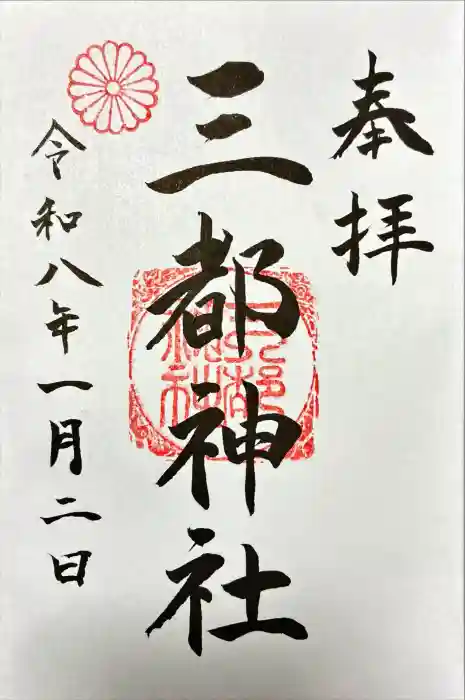 奉拝
三都神社
令和八年一月二日